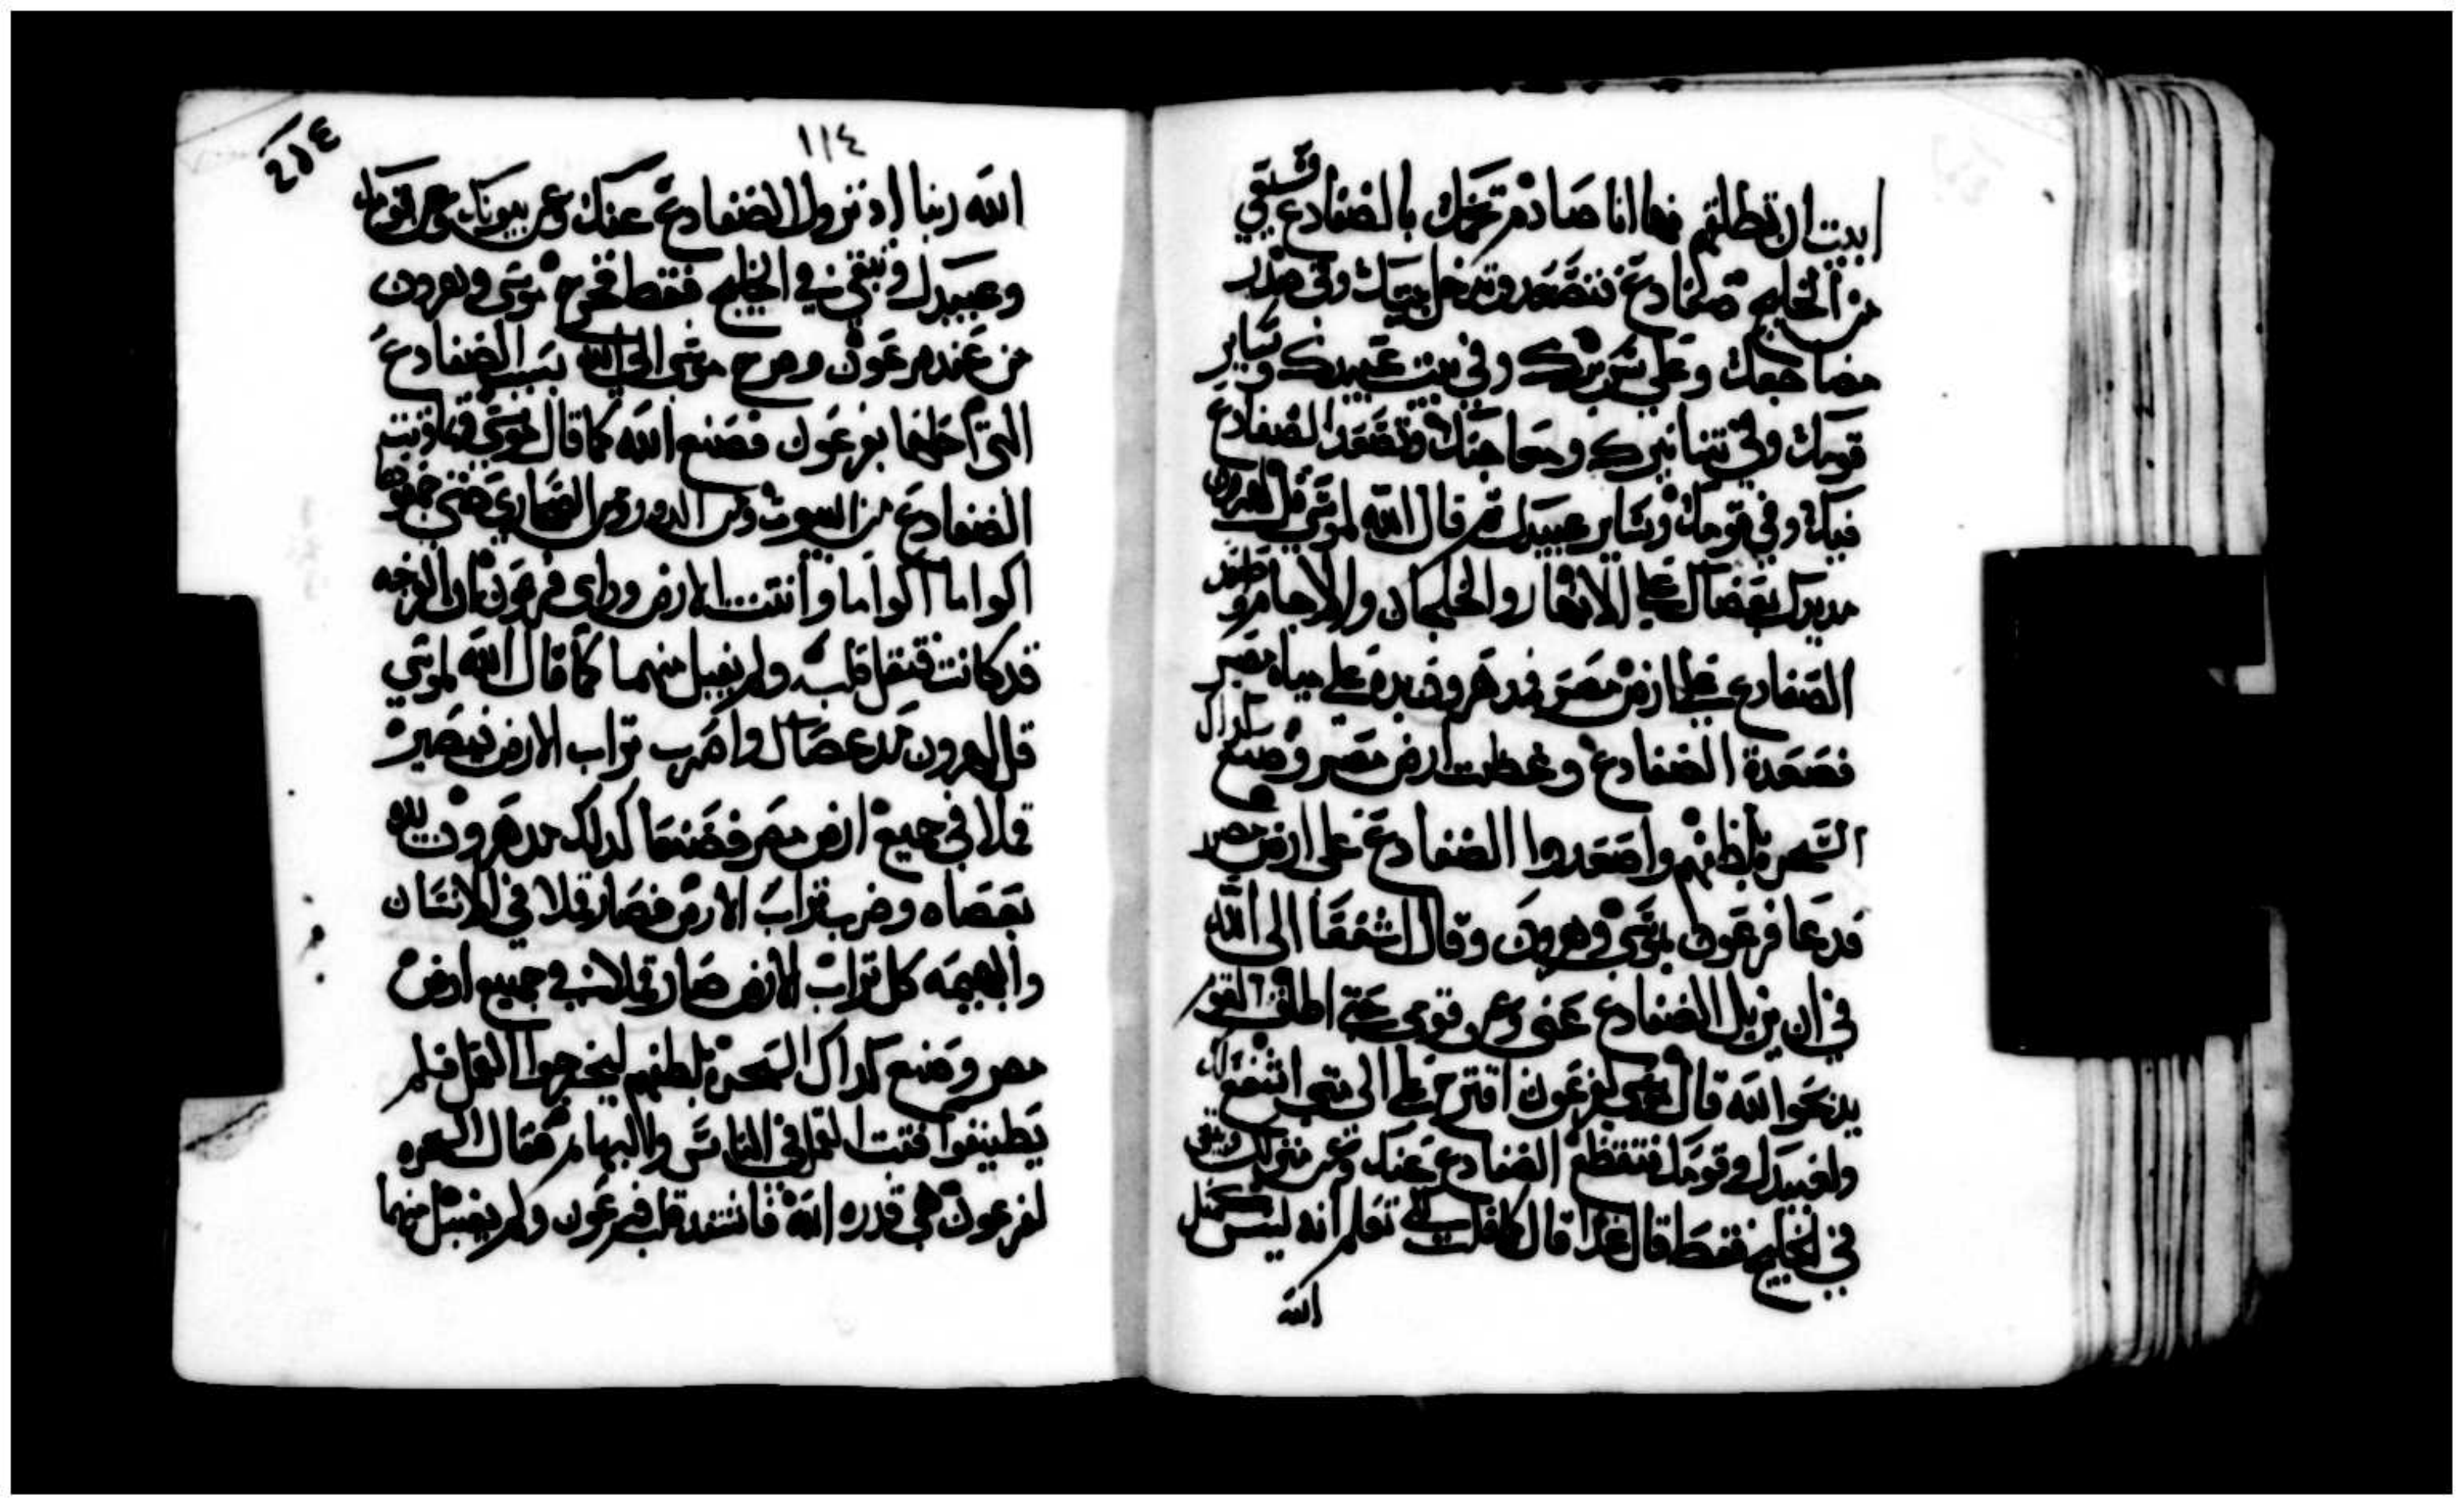 ابيت ان تطلقهم فها انا صادم تخمك بالضفادع فتسقي
من الخليج ضفادع فتصعد وتدخل بيتك وفي خدر
مضاجعك وعلى سريرك وفي بيت عبيدك وساير
قومك وفي تنانيرك ومعاجنك وتصعد الضفادع
فيك وفي قومك وساير عبيدك تم قال الله لموسى قل لهرون
مد يدك بعصاك على الانهار والخلجان والاجام
الضفادع على ارض مصر فمد هرون يده على مياه مصر
فصعدة الضفادع وغطت ارض مصر وصنع كداك
السحرة بلطفهم واصعدوا الضفادع على ارض مصر
فدعا فرعون بموسى وهرون وقال اشفعا الى الله
في ان يزيل الضفادع عني وعن قومي حتى اطلق القوم
يدبحوا لله قال موسى لفرعون اقترح علي الى متى اشفع لك
ولعبيدك وقومك فتنقطع الضفادع عنك وعن منزلك وتبقى
في الخليج فقط قال غدا قال كما قلت لكي تعلم انه ليس كمثل
الله
١١٤
الله ربنا اد تزول الضفادع عنك وعن بيوتك وعن قومك
وعبيدك وتبقى في الخليج فقط فخرج موسى وهرون
من عند فرعون وصرح موسى الى الله بسبب الضفادع
التي احلها بفرعون فصنع الله كما قال موسى
الضفادع من البيوت ومن الدور ومن الصحاري حتى جمعوها
اكواما اكواما وانتنت الارض وراى فرعون ان الرخه
قد كانت فتقل قلبه ولم يقبل منهما كما قال الله لموسى
قل لهرون مد عصاك واضرب تراب الارض فيصير
قملا في جميع ارض مصر فصنعا كدلك مد هرون يده
بعصاه وضرب تراب الارض فصار قملا في الانسان
والبهيمه كل تراب الارض صار قملا في جميع ارض
مصر وصنع كداك السحرة بلطفهم ليخرجوا القمل فلم
يطيقوا فتبت القمل في الناس والبهايم فقال السحره
لفرعون هي قدره الله فاشتد قلب فرعون ولم يقبل منهما